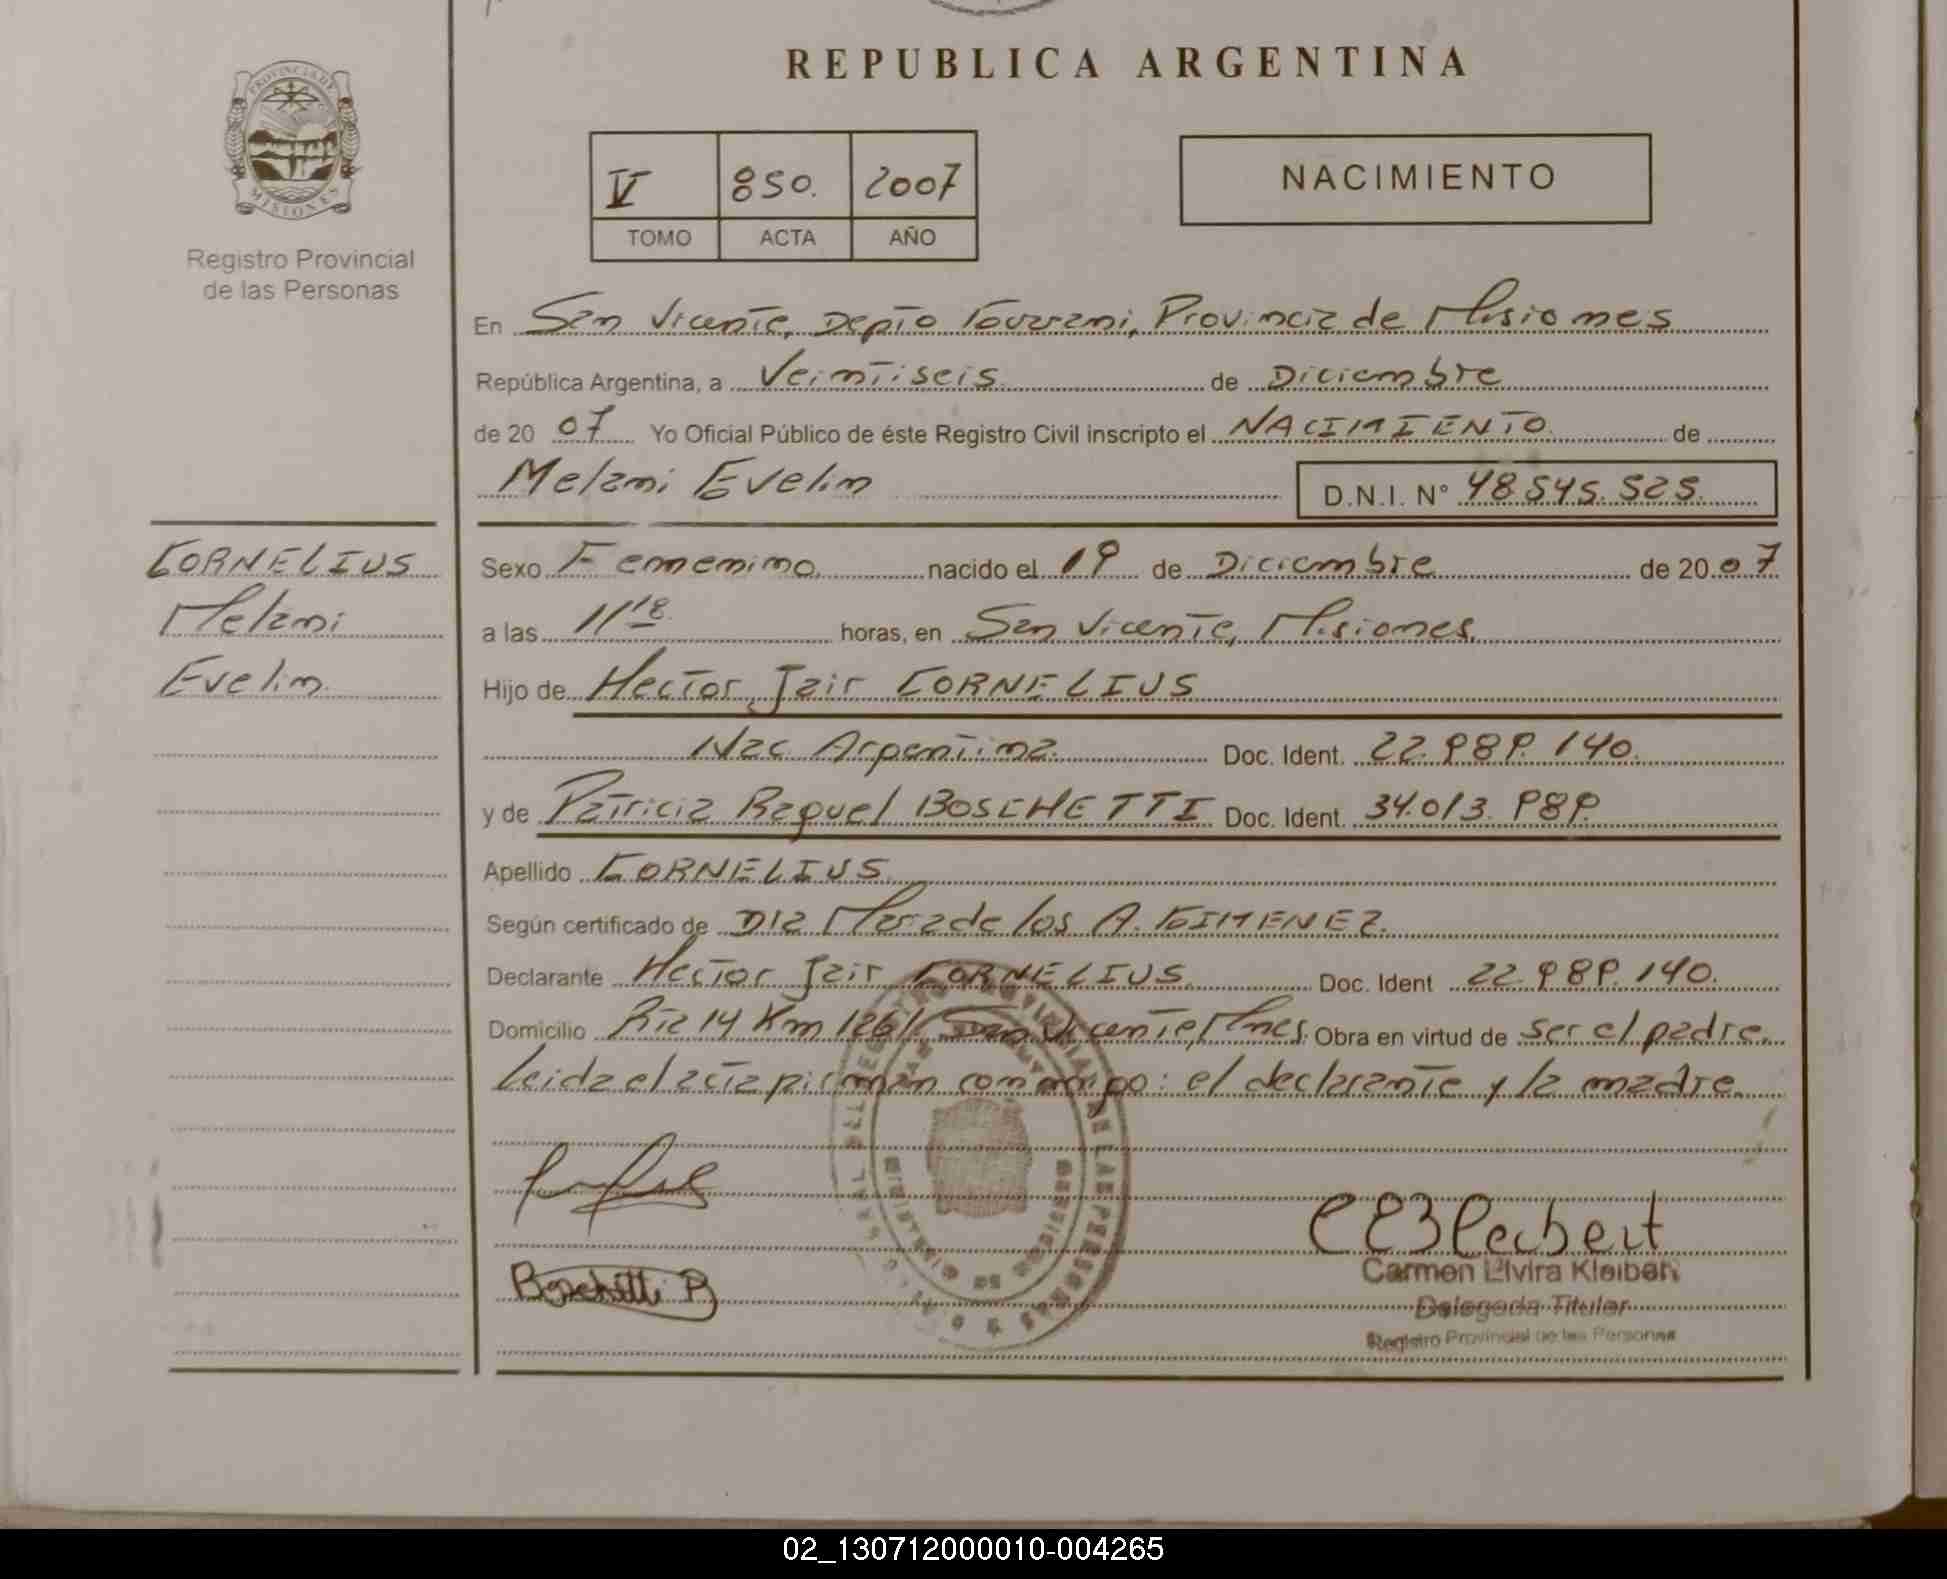 REPUBLICA ARGENTINA
PROVINCIA DE
MISIONES
Registro Provincial
de las Personas
V 850. 2007
TOMO ACTA AÑO
NACIMIENTO
En San Vicente, Depto Guarani, Provincia de Misiones
República Argentina, a Veintiseis de Diciembre
de 20 07 Yo Oficial Público de éste Registro Civil inscripto el NACIMIENTO de
Melani Evelin D.N.I. N° 48.545.525.
CORNELIUS
Melani
Evelin
Sexo Femenino nacido el 19 de Diciembre de 20 07
a las 11'18 horas, en San Vicente, Misiones.
Hijo de Hector Jair CORNELIUS
Nac. Argentina. Doc. Ident. 22.989.140.
y de Patricia Raquel BOSCHETTI Doc. Ident. 34.013.989.
Apellido CORNELIUS
Según certificado de Dra Maria de los A. GIMENEZ.
Declarante Hector Jair CORNELIUS. Doc. Ident 22.989.140.
Domicilio Rta 14 Km 1261 San Vicente, Mnes. Obra en virtud de ser el padre.
Leida el acta firman conmigo: el declarante y la madre.
Boschetti P
Carmen Elvira Kleibert
Delegada Titular
Registro Provincial de las Personas
02_130712000010-004265